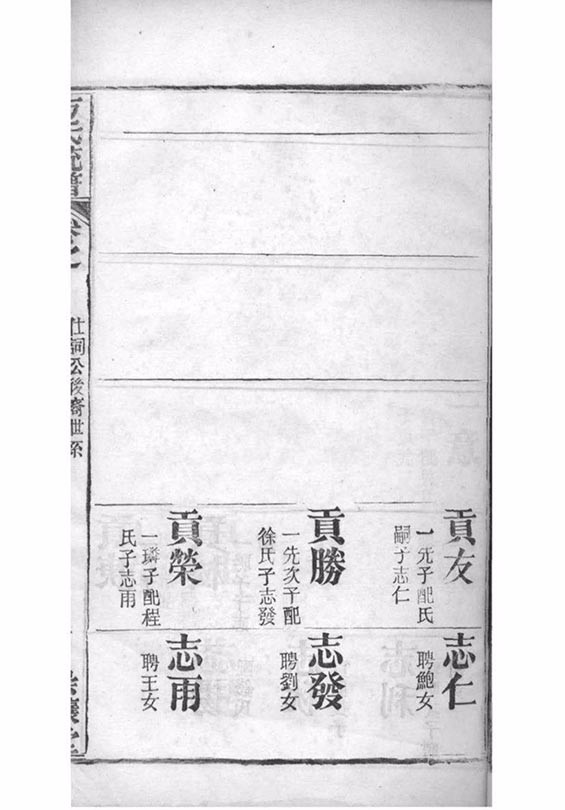 貢友
一先子配氏
嗣子志仁
貢勝
一先次子配
徐氏子志發
貢榮
一璘子配程
氏子志雨
志仁
聘鮑女
志發
聘劉女
志雨
聘王女
氏統譜
卷之
仕詞公後裔世系